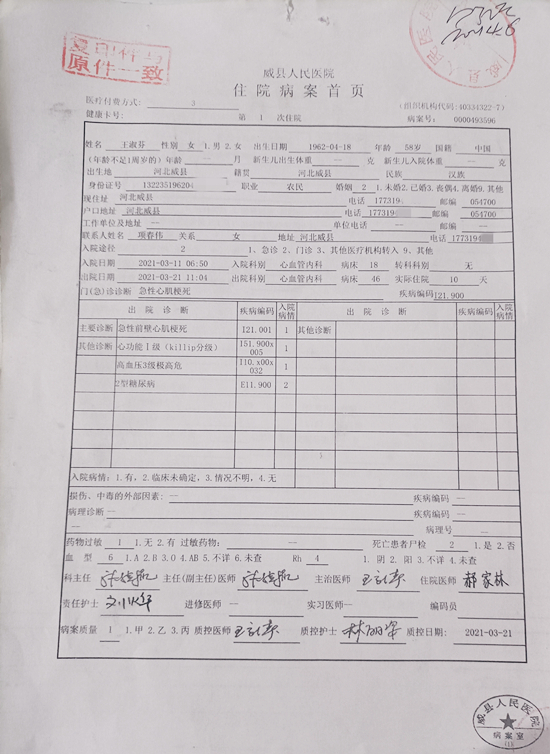 复印件与
原件一致
威县人民医院
住院病案首页
医疗付费方式: 3 (组织机构代码:40334322-7)
健康卡号: 第 1 次住院 病案号: 0000493596
姓名 王淑芬 性别 女 1.男 2.女 出生日期 1962-04-18 年龄 58岁 国籍 中国
(年龄不足1周岁的)年龄 — 月 新生儿出生体重 — 克 新生儿入院体重 — 克
出生地 河北威县 籍贯 河北威县 民族 汉族
身份证号 132235196204 职业 农民 婚姻 2 1.未婚2.已婚3.丧偶4.离婚9.其他
现住址 河北威县 电话 177319 邮编 054700
户口地址 河北威县 电话 177319 邮编 054700
工作单位及地址 — 单位电话 — 邮编 —
联系人姓名 项春伟 关系 女 地址 河北威县 电话 177319
入院途径 2 1、急诊 2、门诊 3、其他医疗机构转入 9、其他
入院日期 2021-03-11 06:50 入院科别 心血管内科 病床 18 转科科别 无
出院日期 2021-03-21 11:04 出院科别 心血管内科 病床 46 实际住院 10 天
门(急)诊诊断 急性心肌梗死 疾病编码 I21.900
出院诊断 疾病编码 入院病情 出院诊断 疾病编码 入院病情
主要诊断 急性前壁心肌梗死 I21.001 1 其他诊断
其他诊断 心功能Ⅰ级(killip分级) I51.900x005 1
高血压3级极高危 I10.x00x032 1
2型糖尿病 E11.900 2
入院病情: 1.有, 2.临床未确定, 3.情况不明, 4.无
损伤、中毒的外部因素: — 疾病编码 —
病理诊断 — 疾病编码 —
— 病理号 —
药物过敏 1 1.无 2.有 过敏药物: — 死亡患者尸检 2 1.是 2.否
血型 6 1.A 2.B 3.O 4.AB 5.不详 6.未查 Rh 4 1.阴 2.阳 3.不详 4.未查
科主任 主任(副主任)医师 主治医师 住院医师 郝家林
责任护士 进修医师 — 实习医师— 编码员
病案质量 1 1.甲 2.乙 3.丙 质控医师 质控护士 质控日期: 2021-03-21
威县人民医院
病案室
(1)